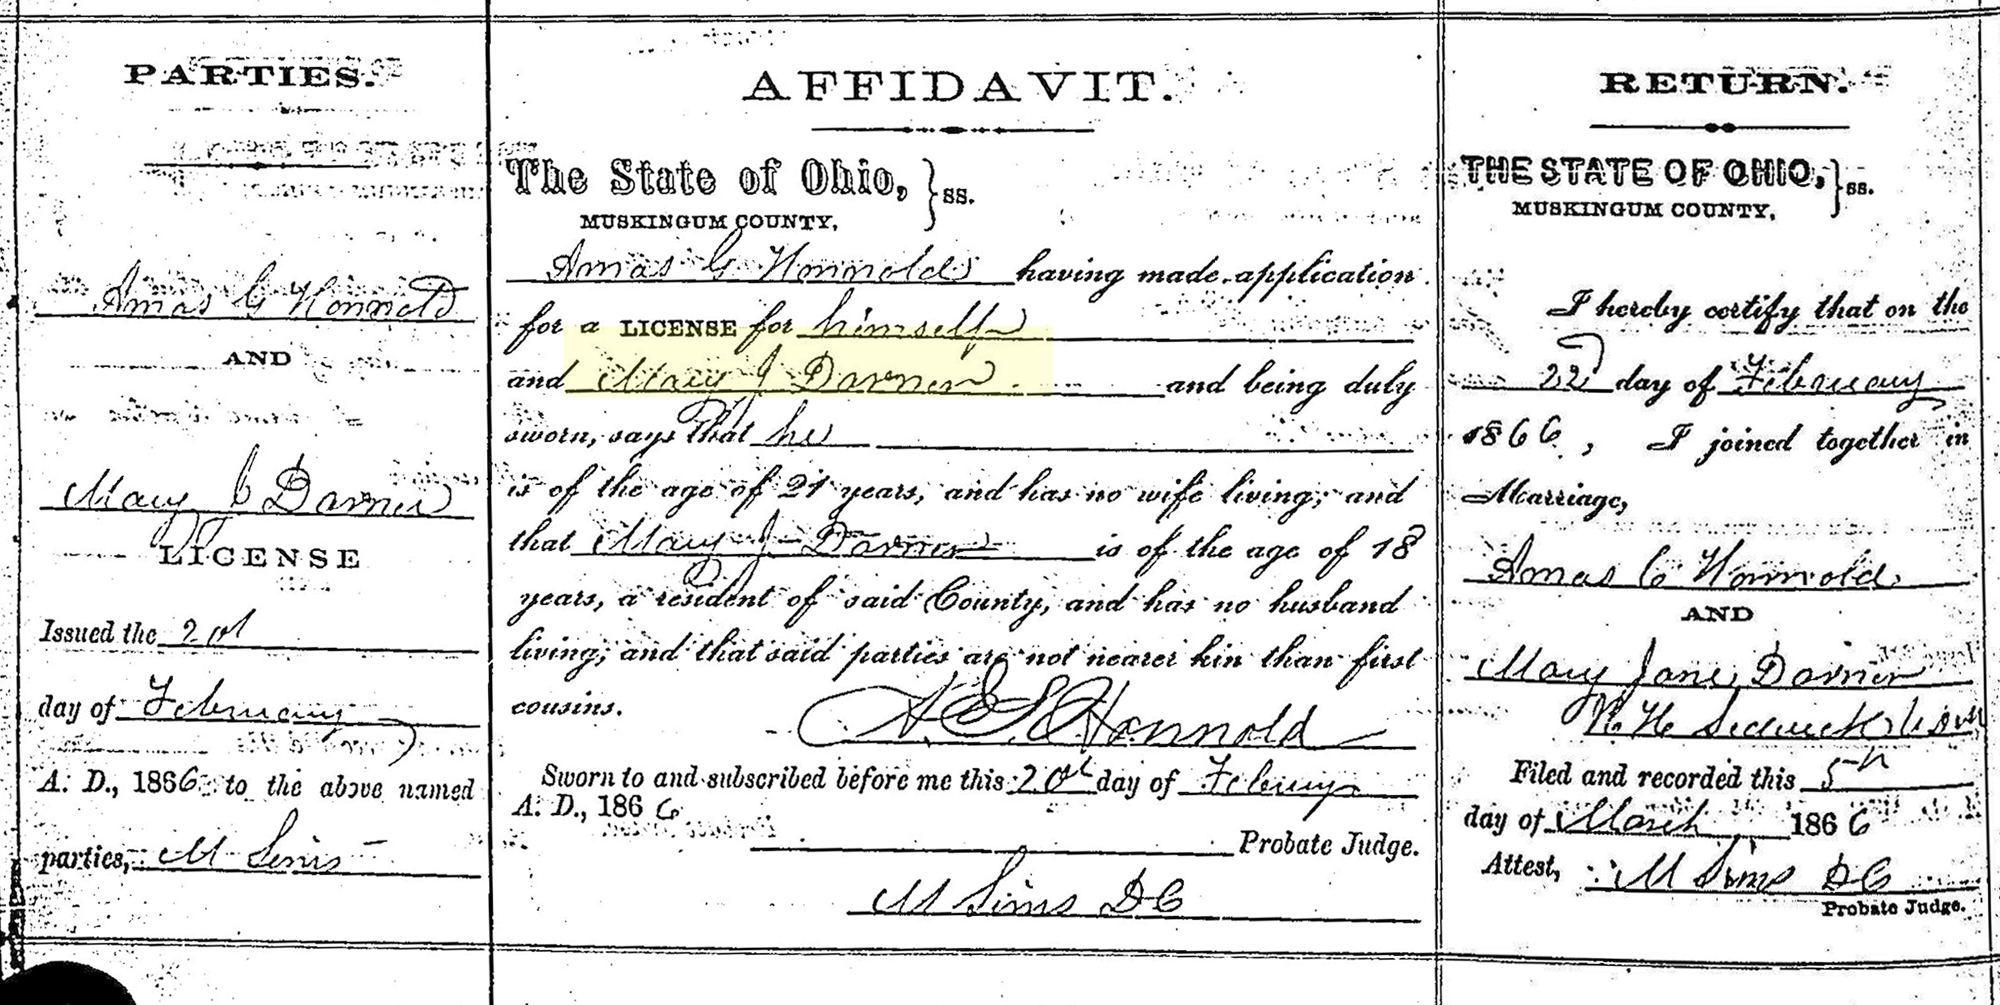 PARTIES.
Amas G Honnold
AND
Mary C Darner
LICENSE
Issued the 20th
day of February
A. D., 1866 to the above named
parties, M Sims
AFFIDAVIT.
The State of Ohio, } ss.
MUSKINGUM COUNTY,
Amas G Honnold having made application
for a LICENSE for himself
and Mary J Darner and being duly
sworn, says that he
is of the age of 21 years, and has no wife living; and
that Mary J Darner is of the age of 18
years, a resident of said County, and has no husband
living; and that said parties are not nearer kin than first
cousins.
A. G. Honnold
Sworn to and subscribed before me this 20th day of February
A. D., 1866
Probate Judge.
M Sims DC
RETURN.
THE STATE OF OHIO, } ss.
MUSKINGUM COUNTY,
I hereby certify that on the
22d day of February
1866, I joined together in
Marriage,
Amas G Honnold
AND
Mary Jane Darner
Sedwick
Filed and recorded this 5th
day of March 1866
Attest, M Sims DC
Probate Judge.